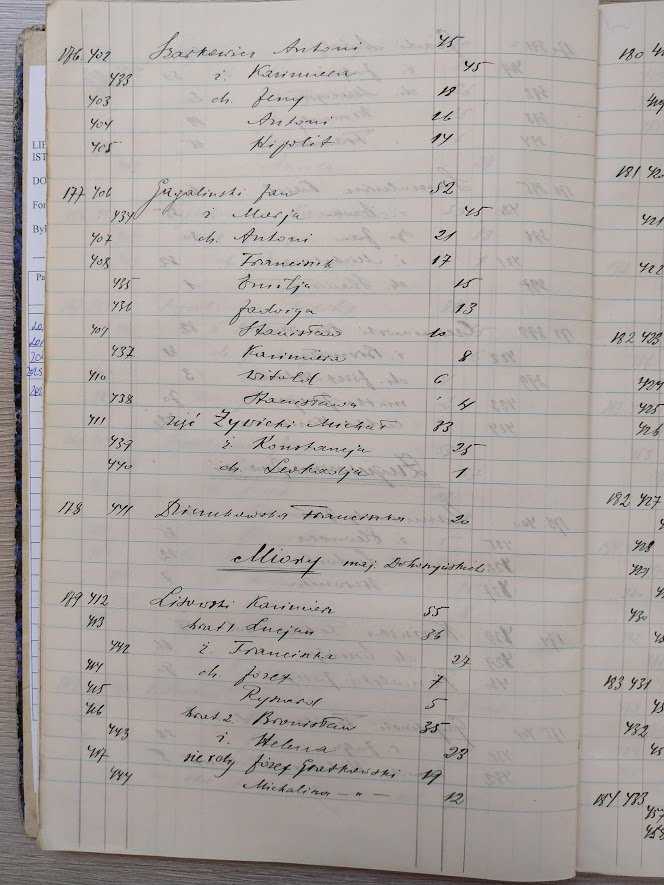 176 402 Szarkowicz Antoni 45
433 ż. Kazimiera 45
403 ch. Jerzy 18
404 Antoni 16
405 Hipolit 14
177 406 Gagaliński Jan 52
434 ż. Marja 45
407 ch. Antoni 21
408 Franciszek 17
435 Emilja 15
436 Jadwiga 13
409 Stanisław 10
437 Kazimiera 8
410 Witold 6
438 Stanisława 4
411 zięć Żywicki Michał 33
439 ż. Konstancja 25
440 ch. Leokadja 1
178 441 Franciszka 20
Miory maj.
179 412 Lisowski Kazimierz 55
413 brat 1 Lucjan 36
442 ż. Franciszka 27
414 ch. Józef 7
415 Ryszard 5
416 brat 2. Bronisław 35
443 ż. Helena 23
417 sieroty Józef Gratkowski 19
444 Michalina -"- 12
180
181
421
422
182 423
424
425
426
182 427
428
429
430
183 431
432
184 433
457
458